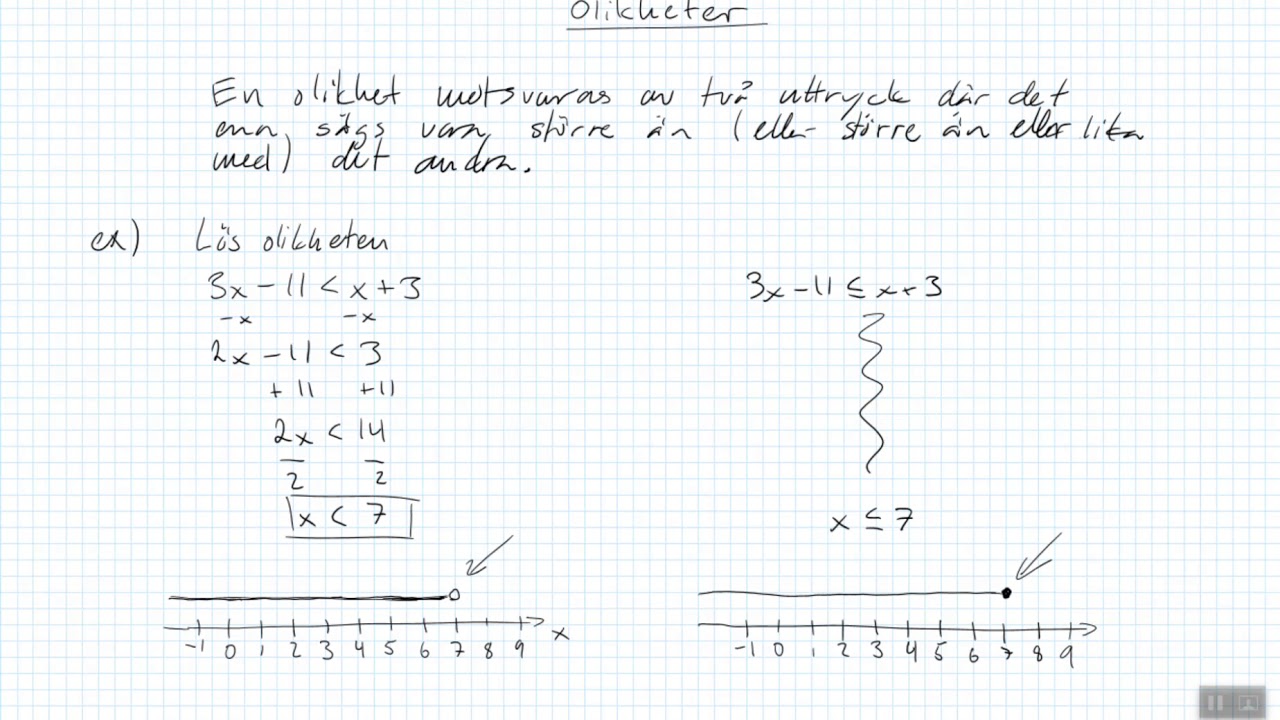 Olikheter
En olikhet motsvaras av två uttryck där det
ena sägs vara större än (eller större än eller lika
med) det andra.
ex) Lös olikheten
3x - 11 < x + 3
-x -x
2x - 11 < 3
+ 11 +11
2x < 14
2 2
x < 7
-1 0 1 2 3 4 5 6 7 8 9 x
3x - 11 ≤ x + 3
x ≤ 7
-1 0 1 2 3 4 5 6 7 8 9